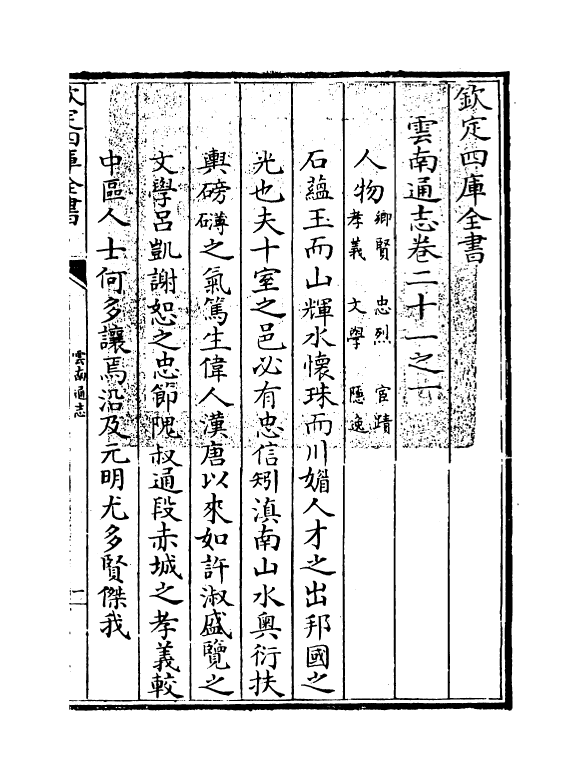 欽定四庫全書
雲南通志卷二十一之一
人物
卿賢 忠烈 宦蹟
孝義 文學 隱逸
石蘊玉而山輝水懷珠而川媚人才之出邦國之
光也夫十室之邑必有忠信矧滇南山水奧衍扶
輿磅礴之氣篤生偉人漢唐以來如許淑盛覽之
文學呂凱謝恕之忠節隗叔通段赤城之孝義較
中區人士何多讓焉沿及元明尤多賢傑我
欽定四庫全書
雲南通志
一